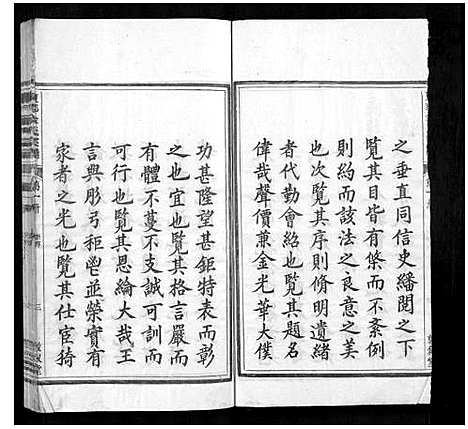 之垂直同信史繙閱之下
覽其目皆有條而不紊例
則約而該法之良意之美
也次覽其序則脩明遺緒
者代勤會紹也覽其題名
偉哉聲價兼金光華大僕
功甚隆望甚鉅特表而彰
之也宜也覽其格言嚴而
有體不蔓不支誠可訓而
可行也覽其恩綸大哉王
言與彤弓秬鬯並榮實有
家者之光也覽其仕宦猗